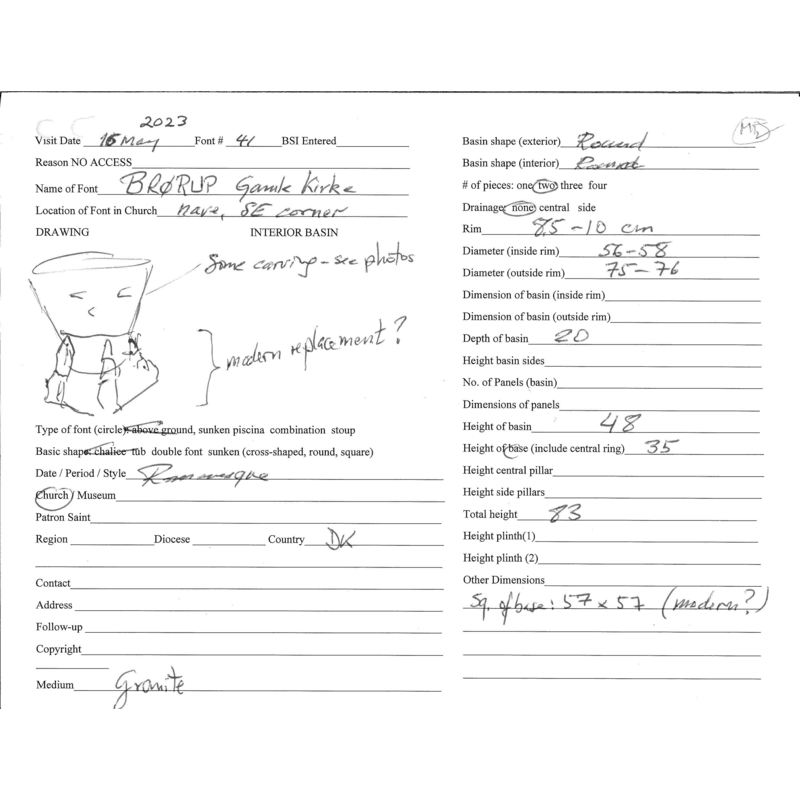 2023
Visit Date 16 May Font # 41 BSI Entered
Reason NO ACCESS
Name of Font BRØRUP Gamle Kirke
Location of Font in Church nave, SE corner
DRAWING INTERIOR BASIN
Some carving - see photos
modern replacement?
Type of font (circle): above ground, sunken piscina combination stoup
Basic shape: chalice tub double font sunken (cross-shaped, round, square)
Date / Period / Style Romanesque
Church / Museum
Patron Saint
Region Diocese Country DK
Contact
Address
Follow-up
Copyright
Medium Granite
Basin shape (exterior) Round
Basin shape (interior) Round
# of pieces: one two three four
Drainage: none central side
Rim 8.5 - 10 cm
Diameter (inside rim) 56-58
Diameter (outside rim) 75-76
Dimension of basin (inside rim)
Dimension of basin (outside rim)
Depth of basin 20
Height basin sides
No. of Panels (basin)
Dimensions of panels
Height of basin 48
Height of base (include central ring) 35
Height central pillar
Height side pillars
Total height 83
Height plinth(1)
Height plinth (2)
Other Dimensions
Sq. of base: 57 x 57 (modern?)